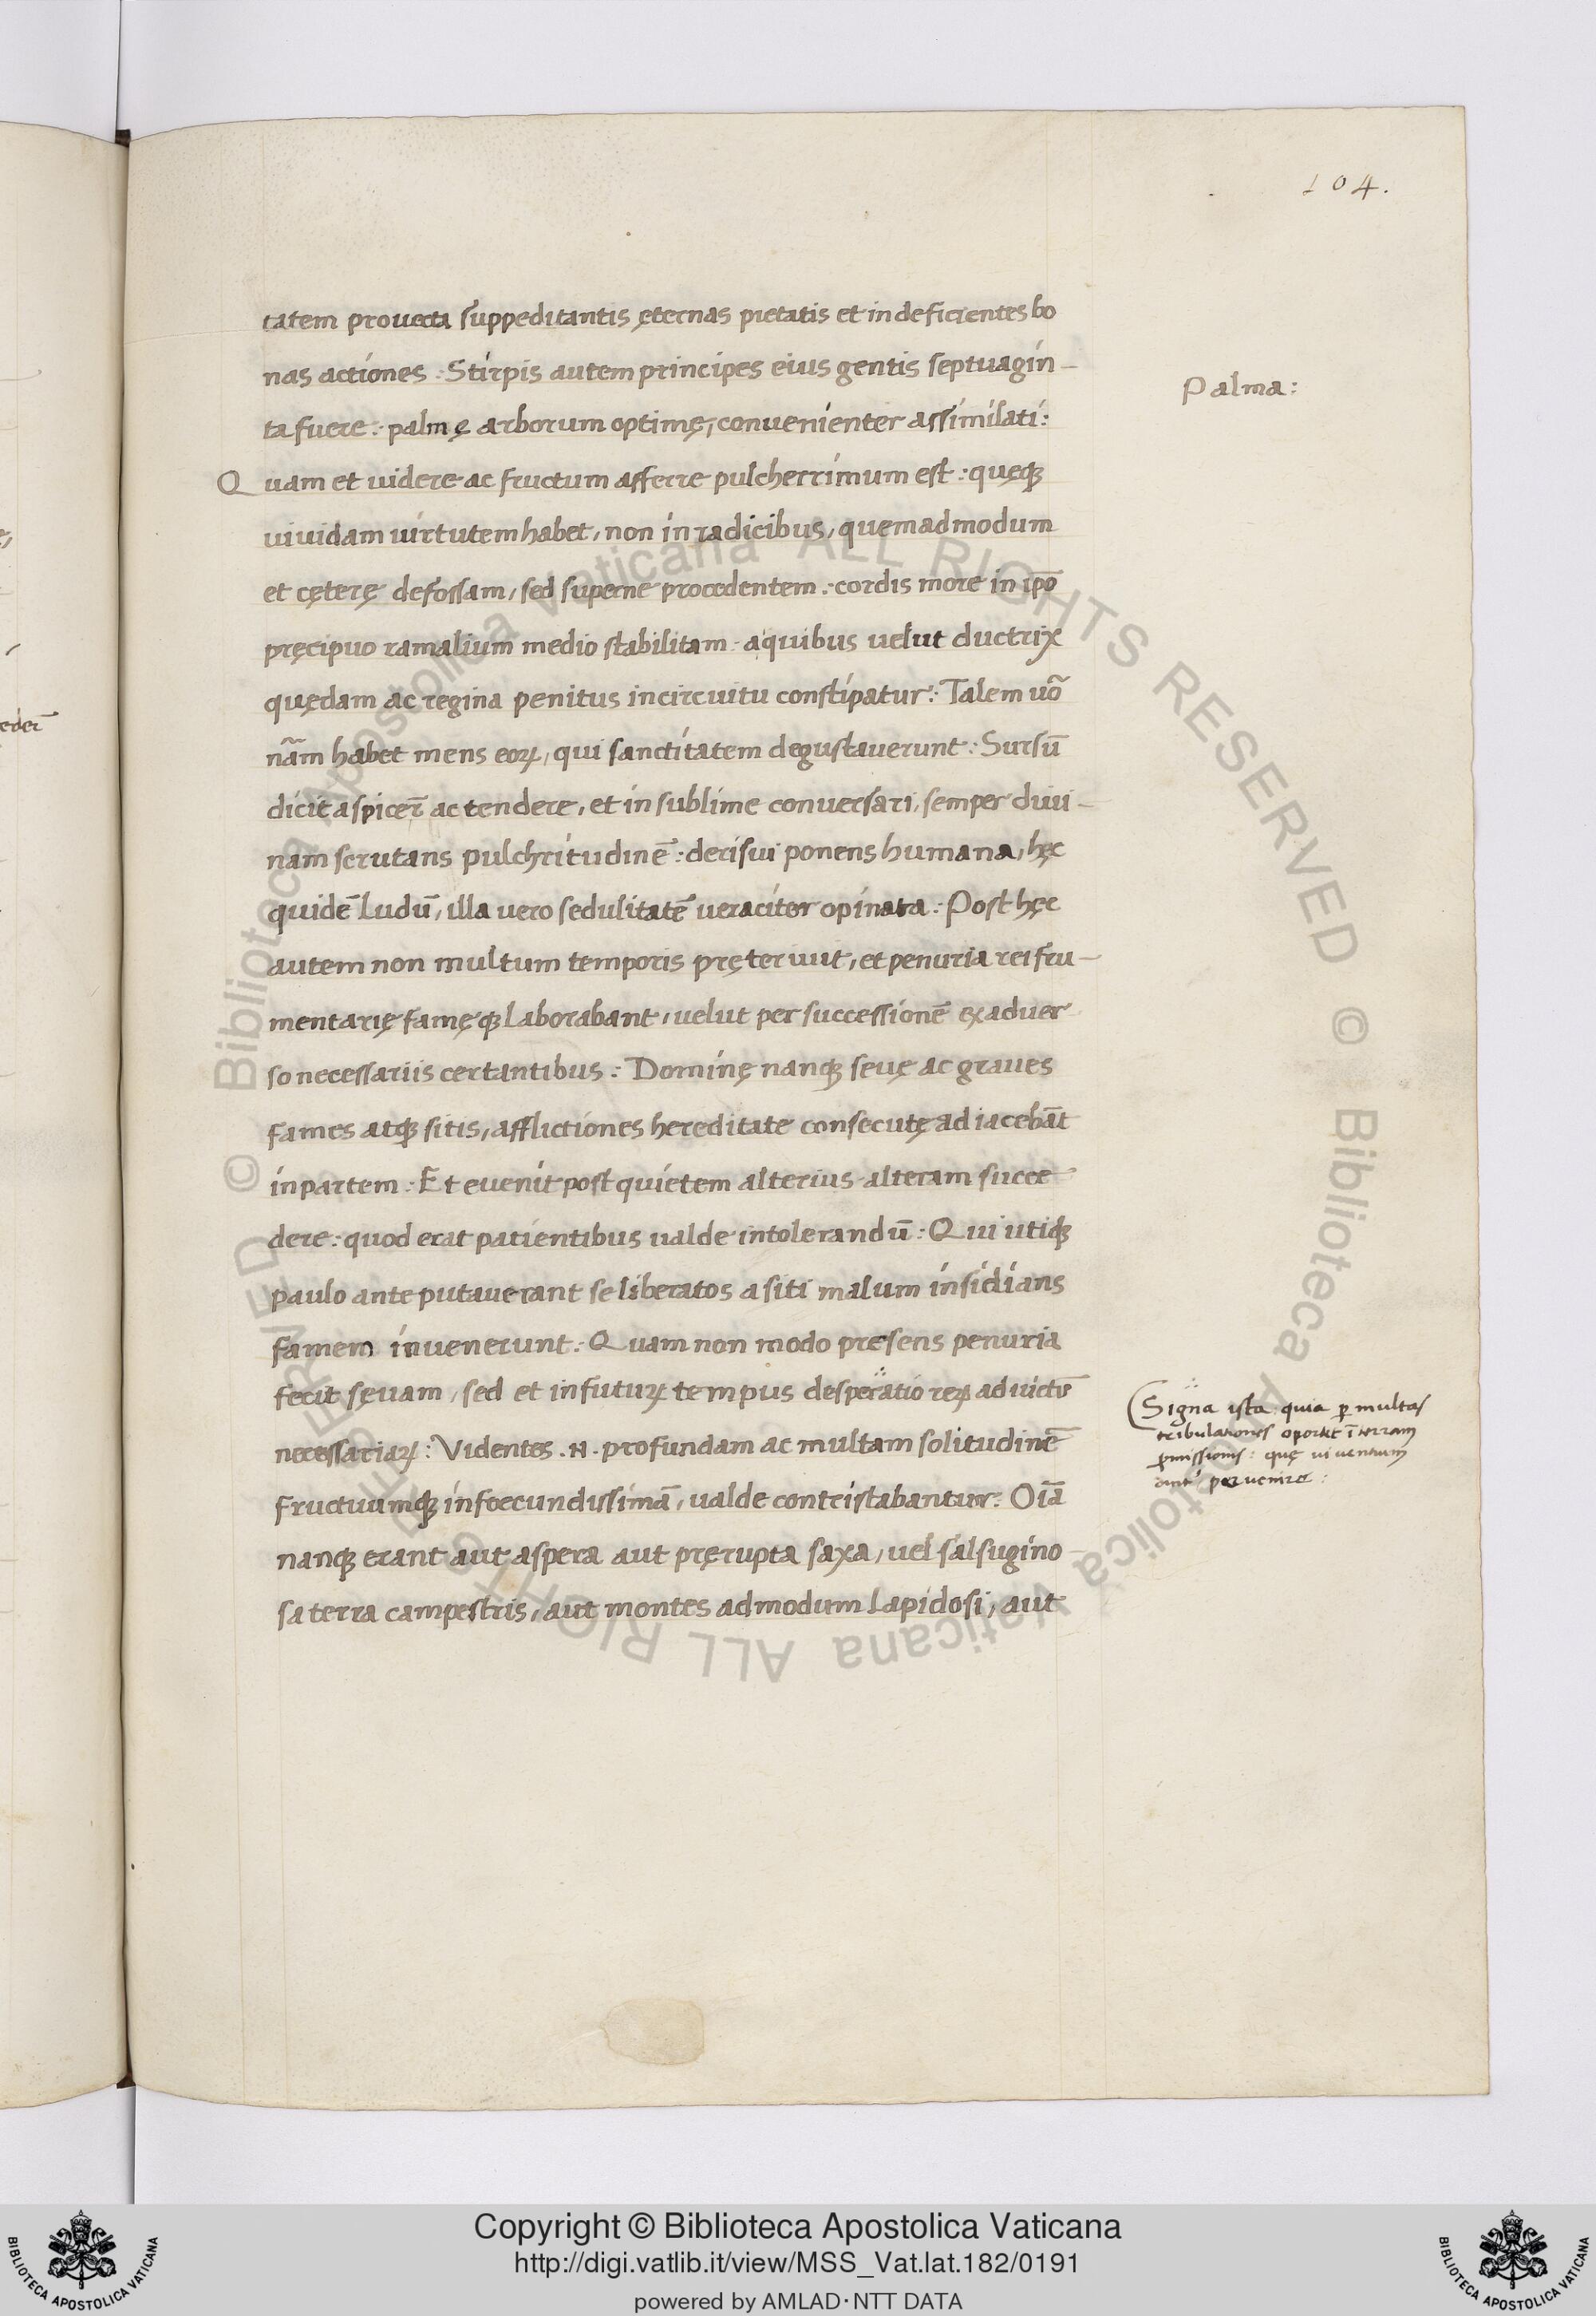 104.
tatem prouecta suppeditantis ęternas pietatis et indeficientes bo
nas actiones : Stirpis autem principes eius gentis septuagin-
ta fuere : palmę arborum optimę, conuenienter assimilati :
Palma :
Quam et uidere ac fructum afferre pulcherrimum est : quęqꝫ
uiuidam uirtutem habet, non in radicibus, quemadmodum
et cęterę defossam, sed superne procedentem : cordis more in ip̄o
pręcipuo ramalium medio stabilitam · a quibus uelut ductrix
quędam ac regina penitus in circuitu constipatur : Talem uõ
nãm habet mens eoꝝ, qui sanctitatem degustauerunt : Sursū
dicit aspicer̄ ac tendere, et in sublime conuersari, semper diui-
nam scrutans pulchritudinē : derisui ponens humana, hęc
quidē ludū, illa uero sedulitatē ueraciter opinata : Post hęc
autem non multum temporis pręteriuit, et penuria rei fru-
mentarię famęqꝫ laborabant, uelut per successionē ex aduer
so necessariis certantibus : Dominę nanqꝫ seuę ac graues
fames atqꝫ sitis, afflictiones hereditate consecutę adiacebāt
in partem : Et euenit post quietem alterius alteram succe
dere : quod erat patientibus ualde intolerandū : Qui utiqꝫ
paulo ante putauerant se liberatos a siti malum insidians
famem inuenerunt : Quam non modo presens penuria
fecit sęuam, sed et in futuꝝ tempus desperatio reꝝ ad uictū
necessariaꝝ : Videntes .N. profundam ac multam solitudinē
fructuumqꝫ infoecundissimā, ualde contristabantur : Oīa
nanqꝫ erant aut aspera aut pręrupta saxa, uel salsugino
sa terra campestris, aut montes admodum lapidosi, aut
Signa ista quia ꝑ multas
tribulationes oportet ī terram
ꝓmissionis : quę uiuentium
pervenire :
eder̄
© Biblioteca Apostolica Vaticana ALL RIGHTS RESERVED © Biblioteca Apostolica Vaticana ALL RIGHTS RESERVED
Copyright © Biblioteca Apostolica Vaticana
http://digi.vatlib.it/view/MSS_Vat.lat.182/0191
powered by AMLAD·NTT DATA
BIBLIOTECA APOSTOLICA VATICANA
BIBLIOTECA APOSTOLICA VATICANA